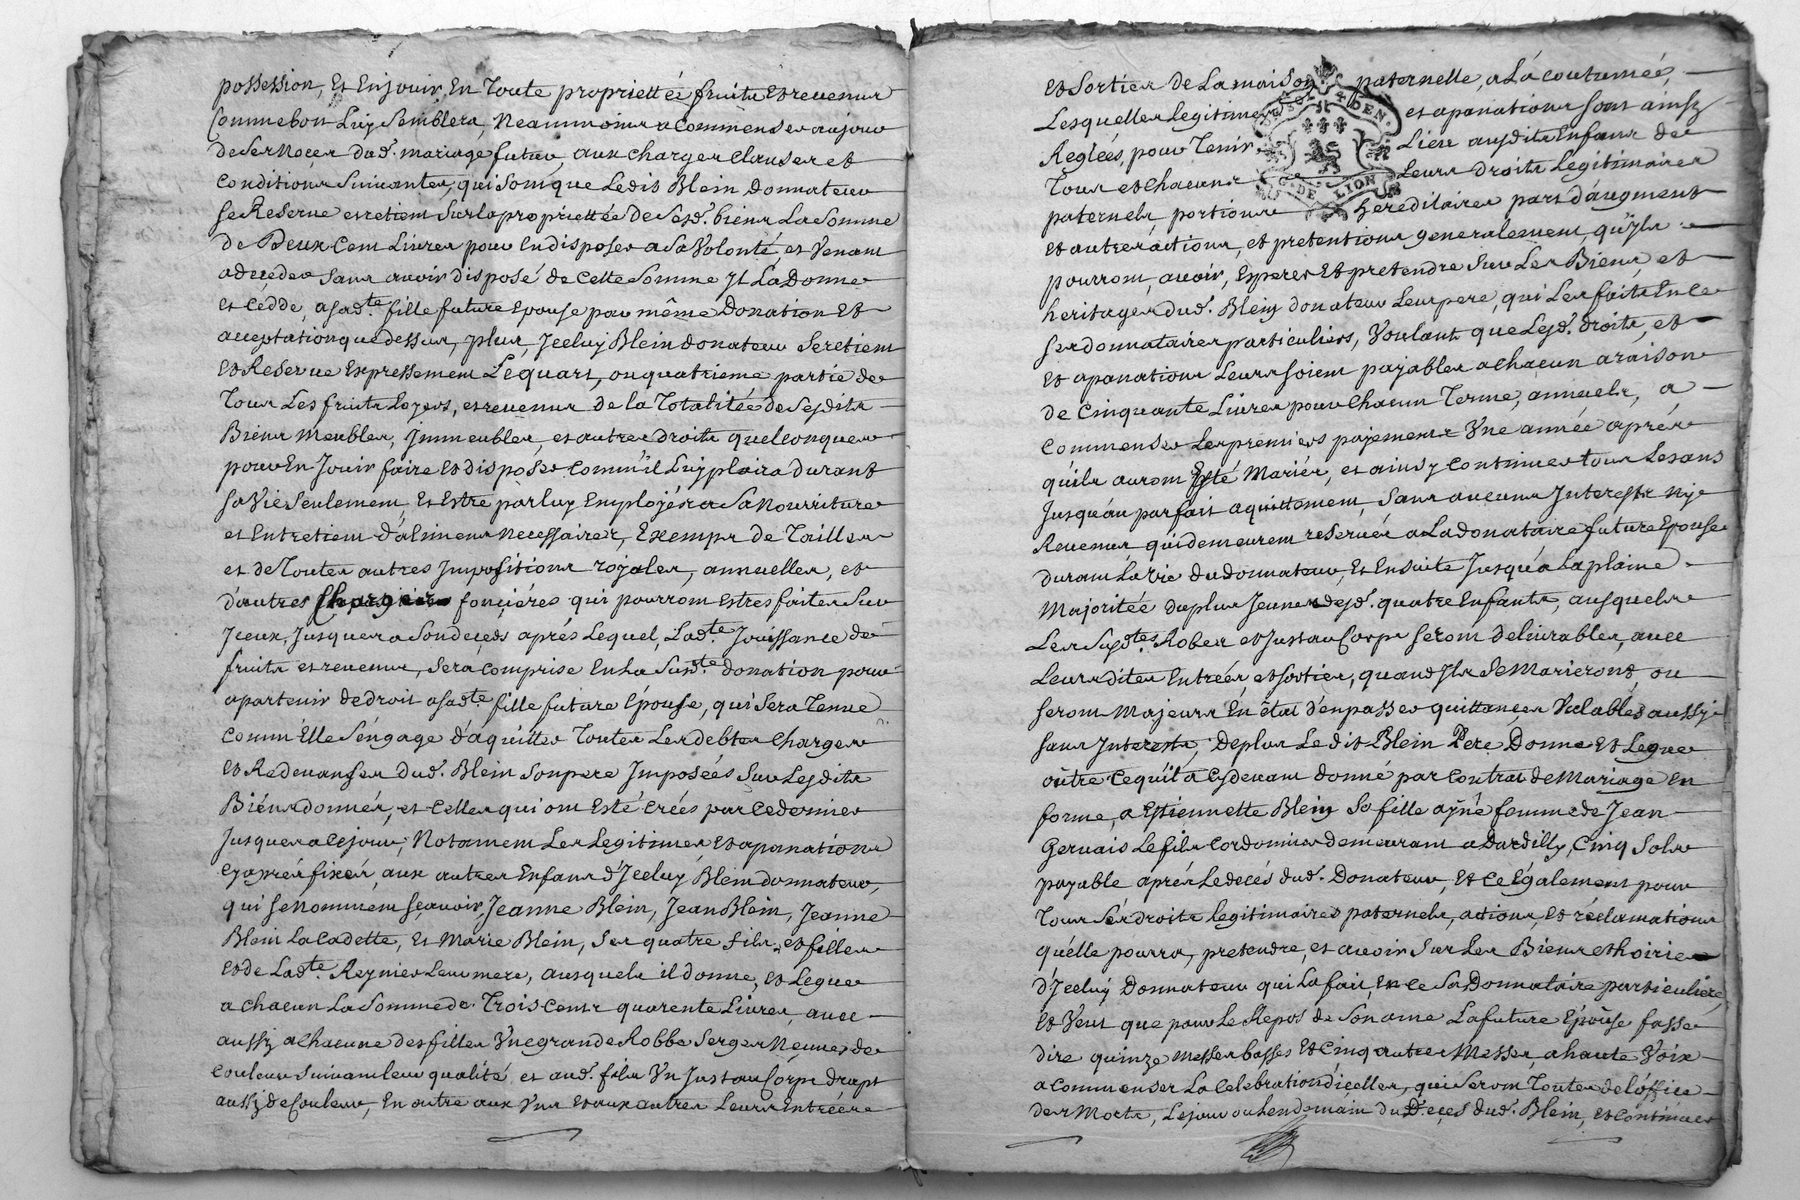 possession, Et Enjouir En Toute propriettée fruits Et revenus
Comme bon Luy Semblera, Neammoins a Commenser aujour
de Ses Noçes dud. mariage futur, aux Charges Clauses et
Conditions Suivantes, qui Sont que Ledit Blein Donnateur
Se Reserve et retient Sur la propriettée de Sesd. biens La Somme
de Deux Cent Livres pour En disposer a Sa Volonté, et Venant
a deçeder Sans avoir disposé de Cette Somme Il La Donne
et Cédde, a Sad.te fille future Epouse par même Donation Et
acceptation que dessus, plus, Jceluy Blein donateur Se retient
Et Reserve Expressement Le quart, ou quatrieme partie de
Tous Les fruits Loyers, et revenus de la Totalitée de Sesdits
Biens Meubles, Jmmeubles, et autres droits quelconques
pour En Jouir faire Et disposer Comm'il Luy plaira durant
Sa Vie Seulement, Et Estre par luy Employés a Sa Nourriture
et Entretient d'alimens Necessaires, Exempt de Tailles
et de Toutes autres Jmpositions royales, annuelles, et
d'autres Charges fonçiéres qui pourront Estres faites Sur
Jceux, Jusques a Son deçeds aprés Lequel, Lad.te Jouissance de
fruits et revenus, Sera Comprise En La Susd.te donation pour
apartenir de droit a Sad.te fille future Epouse, qui Sera Tenue
Comm'Elle S'éngage d'aquitter Toutes Les debtes Charges
Et Redevanses dud. Blein Son pere Jmposées Sur Lesdits
Biéns donnés, et Celles qui ont Esté Crées par Ce dernier
Jusques a Ce jour, Notament Les Legitimes Et apanations
Cy aprés fixés, aux autres Enfans d'Jceluy Blein donnateur,
qui Se Nomment Sçavoir, Jeanne Blein, Jean Blein, Jeanne
Blein La Cadette, Et Marie Blein, Ses quatre fils et filles
Et de Lad.te Reynier Leur mere, ausquels il donne, Et Legue
a Chacun La Somme de Trois Cent quarente Livres, avec
aussy a Chacune des filles Vne grande Robbe Serge Neuve de
Couleur Suivant Leur qualité et aud. fils Vn Justau Corps drapt
aussy de Couleur, En outre aux Vns Et aux autres Leurs Entrées
Et Sorties de La maison paternelle, a La coutumée,
Lesquelles Legitimes et apanations Sont ainsy
Reglées, pour Tenir Lieu ausdits Enfans de
Tous et Chacuns Leurs Droits Legitimaires
paternels portions Hereditaires part d'augment
Et autres áctions, et pretentions generalement, qu'yls
pourront, avoir, Esperer Et pretendre Sur Les Biens, et
heritages dud. Blein donateur Leur pere, qui Les fait En Ce
Ses donnataires particuliers, Voulant que Lesd. droits, et
Et apanations Leurs Soient payables a Chacun a raison
de Cinquante Livres pour Chacun Terme, annuels, a
Commenser Les premiers pajements Vne année aprés
qu'ils auront Esté Mariés, et ainsy Continuer tous Les ans
Jusqu'áu parfait aquittement, Sans aucuns Jnterests ny
Revenus qui demeurent reservés a La donataire future Epouse
durant La Vie du donnateur, Et En Suite Jusqu'á La plaine
Majoritée du plus Jeune desd. quatre Enfants, ausquels
Les Susd.tes Robes et Justau Corps Seront delivrables, avec
Leurs dites Entrées, et Sorties, quand Jls Se Marieront, ou
Seront Majeurs En êtat d'en passer quittances Valables aussy
Sans Jnterests, De plus Le dit Blein Pere Donne Et Legue
oûtre Ce quil a Cy devant donné par Contrat de Mariage En
forme, a Estiennette Blein Sa fille aynée femme de Jean
Gervais Le fils Cordonnier demeurant a Dardilly, Cinq Sols
payable aprés Le decés dud. Donateur, Et Ce Egalement pour
Tous Ses droits Legitimaires paternels, actions, Et réclamations
qu'élle pourra, pretendre, et avoir Sur Les Biens Et hoirie
d'Jceluy Donnateur qui La fait, En Ce Sa Donnataire particuliére,
Et Veut que pour Le Repos de Son ame La future Epouse fasse
dire quinze Messes basses Et Cinq autres Messes, a haute Voix
a Commenser La Celebration d'icelles, qui Seront Toutes de l'óffice
des Morts, Le jour ou Lendemain du Deçes dud. Blein, et Continuer
G. DE LION